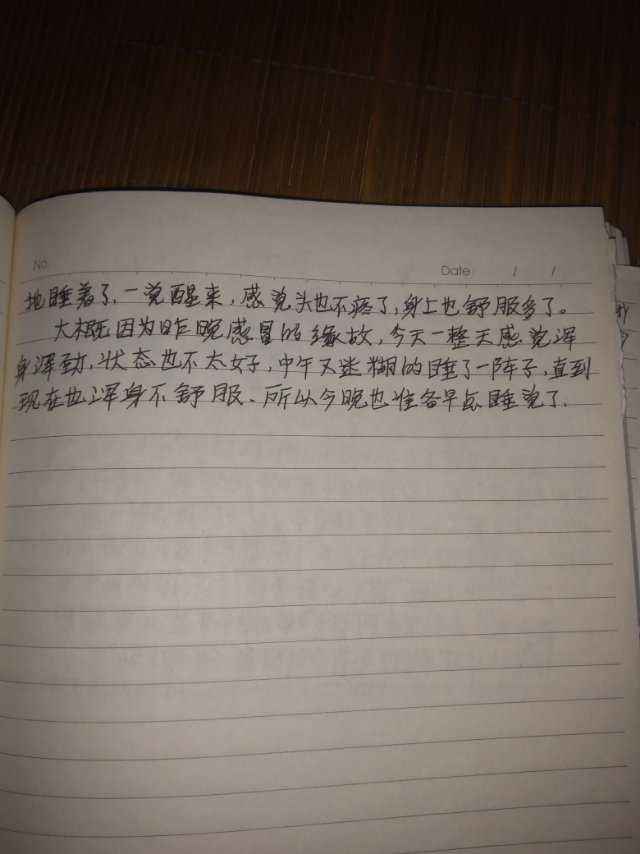 No.
Date: / /
地睡着了,一觉醒来,感觉头也不疼了,身上也舒服多了。
大概因为昨晚感冒的缘故,今天一整天感觉浑
身浑劲,状态也不太好,中午又迷糊的睡了一阵子,直到
现在也浑身不舒服。所以今晚也准备早点睡觉了.